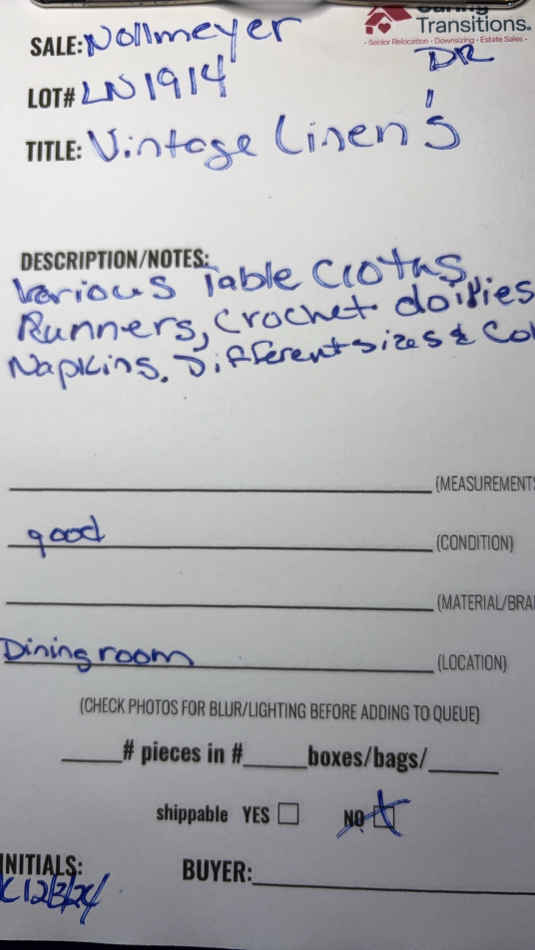 Caring
SALE: Nollmeyer
Transitions.
- Senior Relocation - Downsizing - Estate Sales -
DR
LOT# LN1914
TITLE: Vintage Linen's
DESCRIPTION/NOTES:
Various Table Cloths
Runners, Crochet doilies
Napkins. Different sizes & Col
(MEASUREMENTS
good (CONDITION)
(MATERIAL/BRA
Dining room (LOCATION)
(CHECK PHOTOS FOR BLUR/LIGHTING BEFORE ADDING TO QUEUE)
# pieces in # boxes/bags/
shippable YES NO
INITIALS: BUYER:
12/3/24